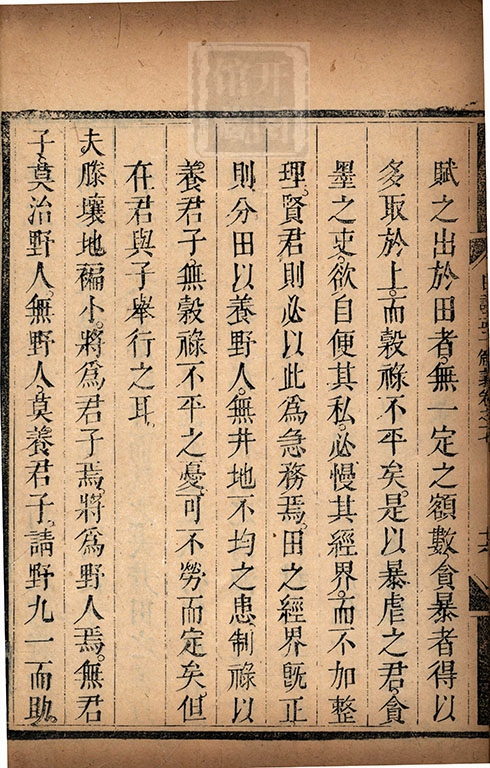 賦之出於田者。無一定之額數。貪暴者得以
多取於上。而穀祿不平矣。是以暴虐之君。貪
墨之吏。欲自便其私。必慢其經界。而不加整
理。賢君則必以此為急務焉。田之經界既正
則分田以養野人。無井地不均之患。制祿以
養君子。無穀祿不平之憂。可不勞而定矣。但
在君與子舉行之耳。
夫滕壤地褊小。將為君子焉。將為野人焉。無君
子莫治野人。無野人莫養君子。請野九一而助。